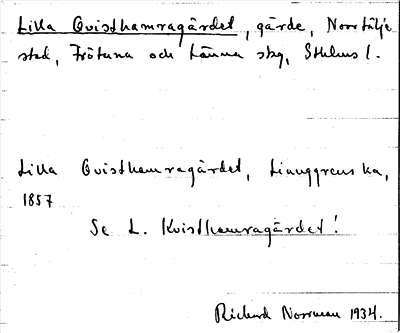 Lilla Qvisthamragärdet, gärde, Norrtälje
stad, Frötuna och Länna skg, Sthlms l.
Lilla Qvisthamragärdet, Ljunggrens ka,
1857
Se L. Kvisthamragärdet!
Richard Norrman 1934.